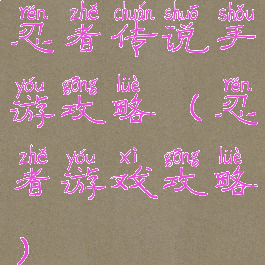 rěn zhě chuán shuō shǒu
忍者传说手
yóu gōng lüè rěn
游攻略（忍
zhě yóu xì gōng lüè
者游戏攻略
）